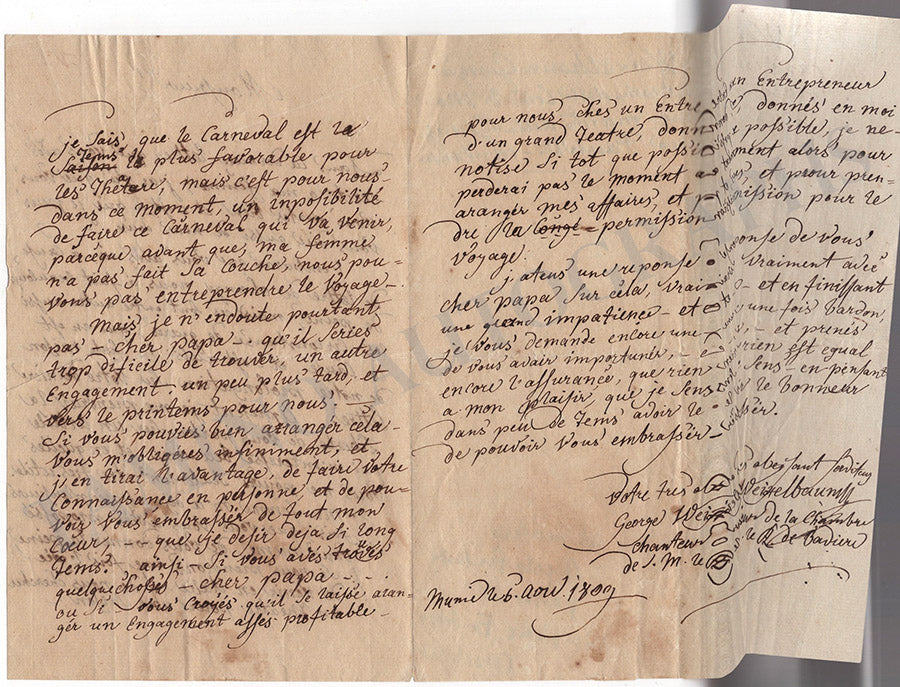 je sais, que le Carneval est le
Saison tems le plus favorable pour
les Thêtare, mais c'est pour nous
dans ce moment, un inposibilité
de faire ce Carneval qui va venir,
parceque avant que, ma femme
n'a pas fait sa couche, nous pou-
vons pas entreprendre le voyage -
Mais je n'endoute pourtant
pas - cher papa - qu'il series
trop dificile de trouver, un autre
Engagement un peu plus tard et
vers le printems pour nous. -
Si vous pouviés bien arranger cela -
vous m'obligeres infinimment, et
j'en tirai l'avantage, de faire votre
Connaissance en personne et de pou-
voir vous embrassër de tout mon
Cœur - que je desir deja si long
tems. ainsi - si vous avés trouvés
quelque choses - cher papa - -
ou si - vous croyés qu'il se laisse aran-
ger un Engagement asses profitable -
pour nous, ches un Entrepreneur
d'un grand Teatre, donnés en moi
notise si tot que possible, je ne-
perderai pas le moment alors pour
aranger mes affaires, et prour pren=
dre la congé - permission pour le
voyage.
j'atens une reponse de vous
cher papa sur cela, vraiment avec
une grand impatience - et en finissant
je vous demande encore une fois bardon,
de vous avair importunés, - et prenés
encore l'assurance, que rien est equal
a mon plaisir, que je sens - en pensant
dans peu de tems avoir le bonneur
de pouvoir vous embrassër.
Votre tres obeissant serviteur
George Weixelbaum
chanteur de la Chambre
de S. M. le R. de Baviere
Munic le 6. Aout. 1809